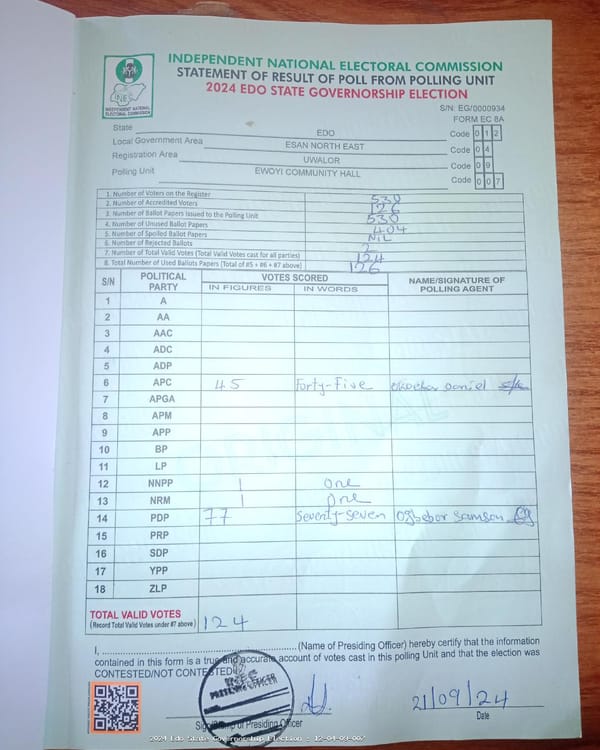 INDEPENDENT NATIONAL ELECTORAL COMMISSION
STATEMENT OF RESULT OF POLL FROM POLLING UNIT
2024 EDO STATE GOVERNORSHIP ELECTION
INEC
INDEPENDENT NATIONAL ELECTORAL COMMISSION
S/N: EG/0000934
FORM EC 8A
State EDO Code 0 1 2
Local Government Area ESAN NORTH EAST Code 0 4
Registration Area UWALOR Code 0 9
Polling Unit EWOYI COMMUNITY HALL Code 0 0 7
1. Number of Voters on the Register 530
2. Number of Accredited Voters 126
3. Number of Ballot Papers Issued to the Polling Unit 530
4. Number of Unused Ballot Papers 404
5. Number of Spoiled Ballot Papers NIL
6. Number of Rejected Ballots 2
7. Number of Total Valid Votes (Total Valid Votes cast for all parties) 124
8. Total Number of Used Ballots Papers (Total of #5 + #6 + #7 above) 126
S/N POLITICAL PARTY VOTES SCORED NAME/SIGNATURE OF POLLING AGENT
IN FIGURES IN WORDS
1 A
2 AA
3 AAC
4 ADC
5 ADP
6 APC 45 Forty-Five Okoebor Daniel
7 APGA
8 APM
9 APP
10 BP
11 LP
12 NNPP 1 One
13 NRM 1 One
14 PDP 77 Seventy-Seven Ogbebor Samson
15 PRP
16 SDP
17 YPP
18 ZLP
TOTAL VALID VOTES
(Record Total Valid Votes under #7 above) 124
I, (Name of Presiding Officer) hereby certify that the information
contained in this form is a true and accurate account of votes cast in this polling Unit and that the election was
CONTESTED/NOT CONTESTED
INEC
PRESIDING OFFICER
21/09/24
Sign/Stamp of Presiding Officer Date
2024 Edo State Governorship Election - 12-04-09-007